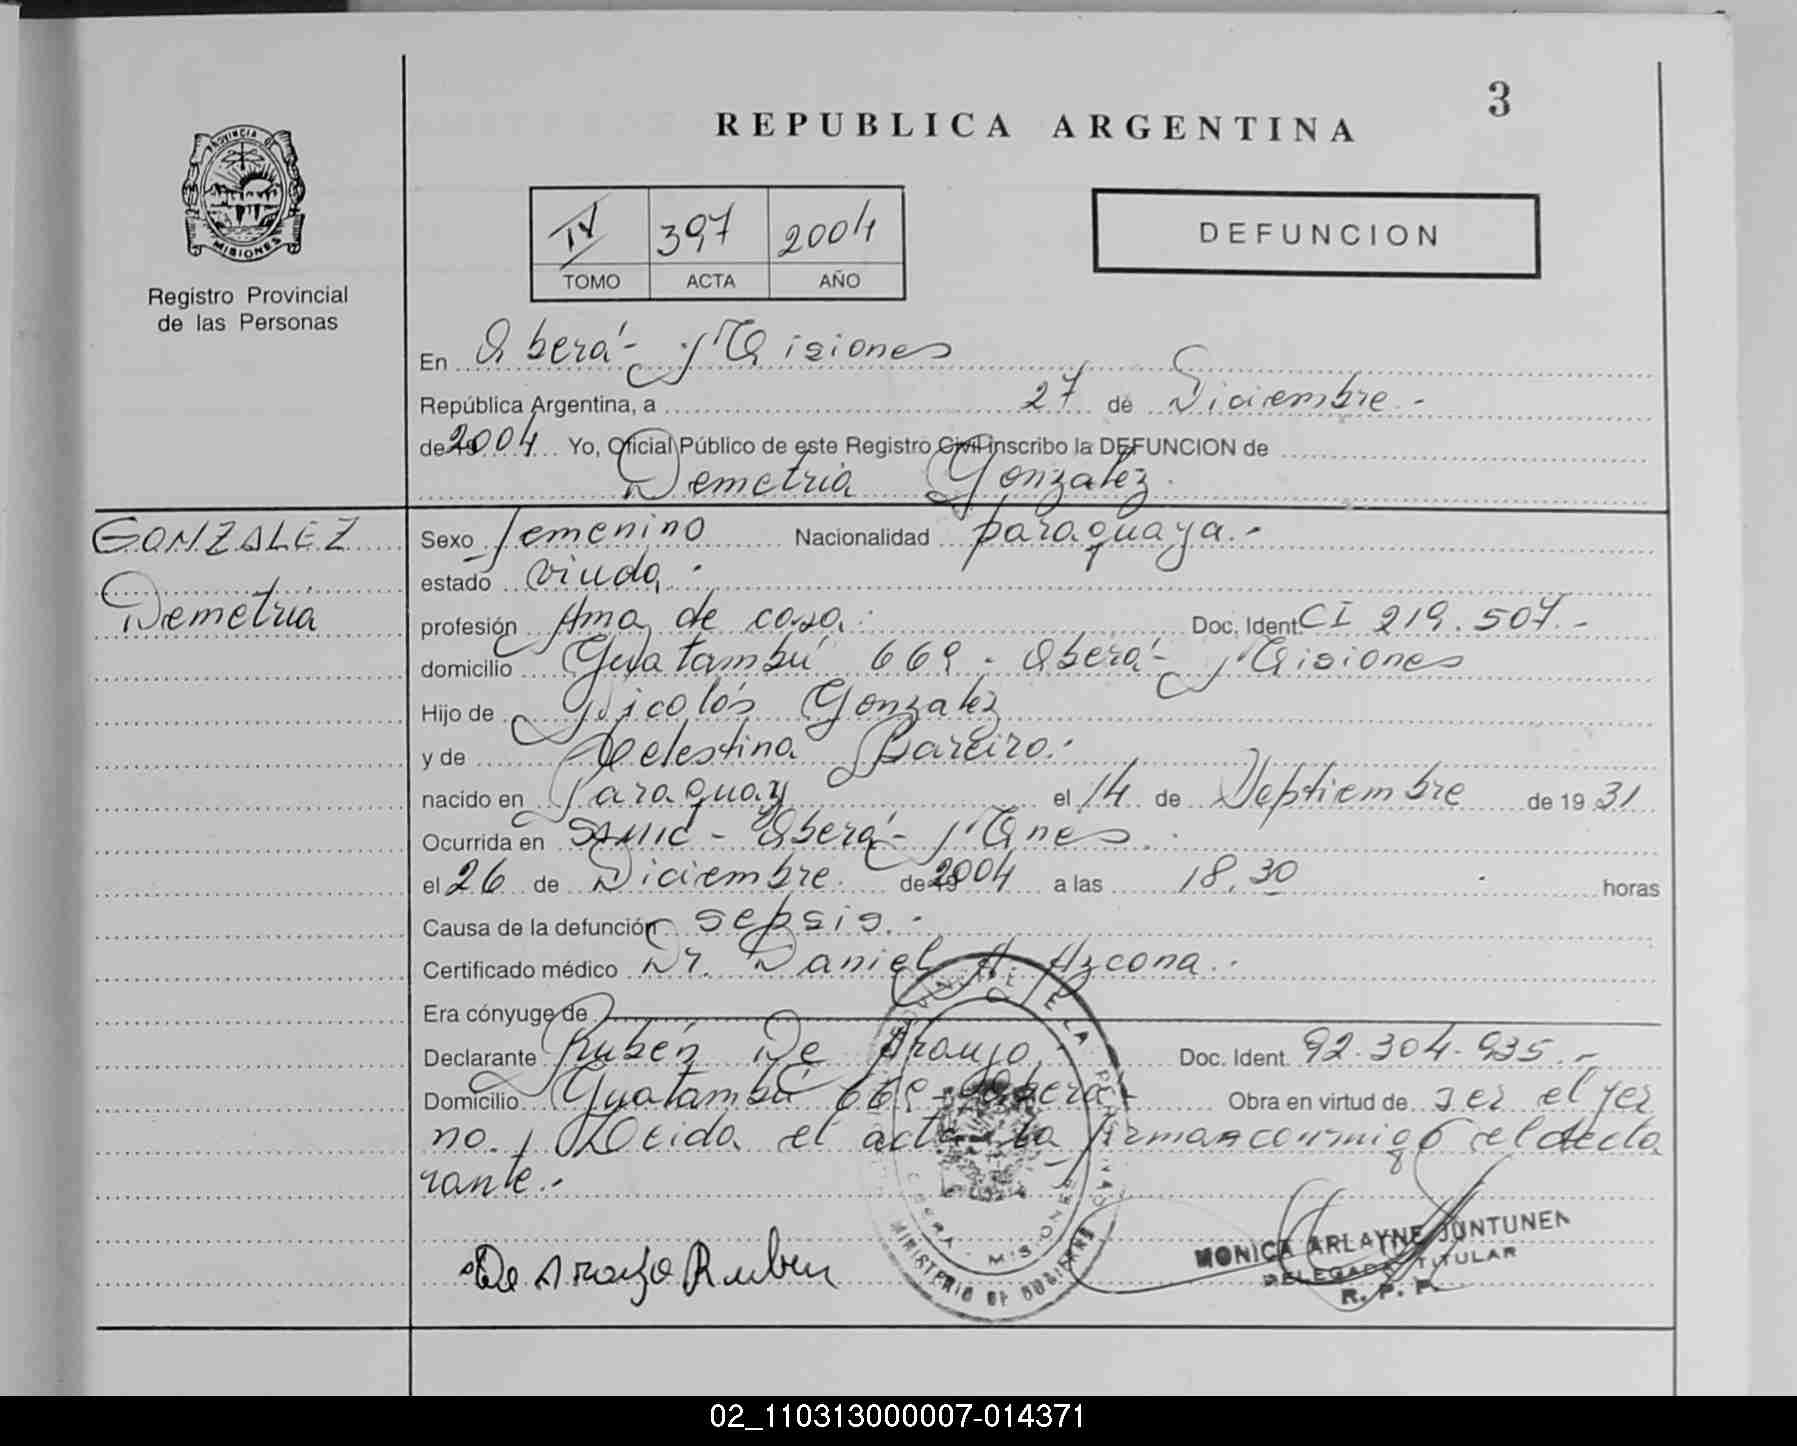 3
REPUBLICA ARGENTINA
PROVINCIA DE
MISIONES
Registro Provincial
de las Personas
IV 397 2004
TOMO ACTA AÑO
DEFUNCION
En Oberá - Misiones
República Argentina, a 27 de Diciembre.-
de 2004 Yo, Oficial Público de este Registro Civil inscribo la DEFUNCION de
Demetria Gonzalez.
GONZALEZ
Demetria
Sexo femenino Nacionalidad paraguaya.-
estado viuda.
profesión Ama de casa. Doc. Ident. CI 219.507.-
domicilio Guatambú 669 - Oberá - Misiones
Hijo de Nicolás Gonzalez
y de Celestina Bareiro.
nacido en Paraguay el 14 de Septiembre de 19 31
Ocurrida en SAMIC - Oberá - Mnes.
el 26 de Diciembre. de 2004 a las 18,30 horas
Causa de la defunción sepsis.-
Certificado médico Dr. Daniel A. Azcona.-
Era cónyuge de
Declarante Rubén De Araujo. Doc. Ident. 92.304.935.-
Domicilio Guatambú 669 - Oberá - Obra en virtud de ser el yer
no. Leida el acta la firman conmigo el decla
rante.-
De Araujo Ruben
MINISTERIO DE GOBIERNO
OBERA - MISIONES
MONICA ARLAYNE JUNTUNEN
DELEGADA TITULAR
R. P. P.
02_110313000007-014371